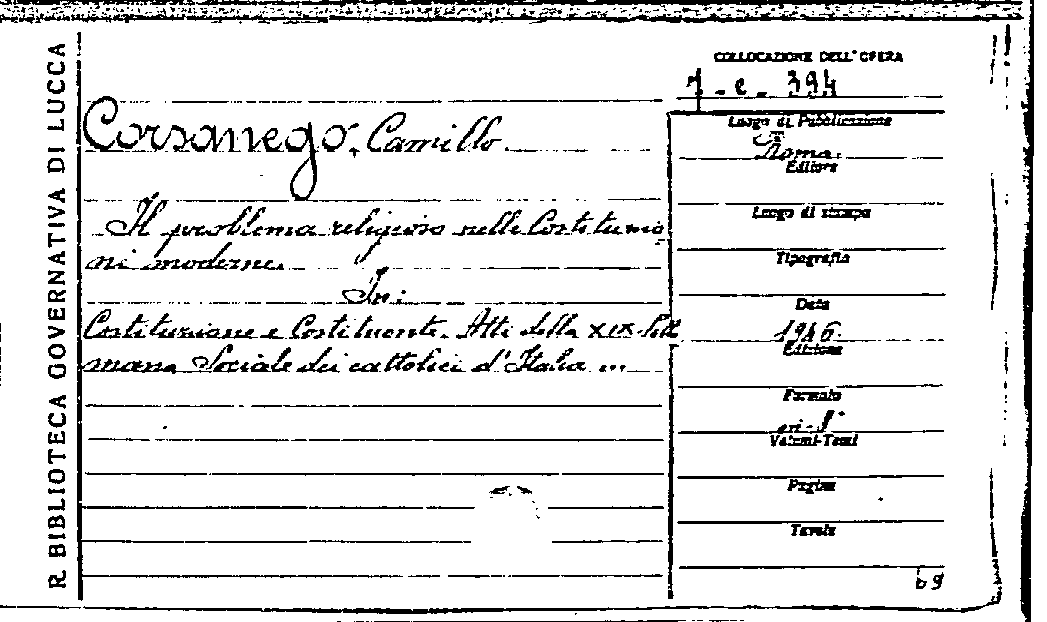 R. BIBLIOTECA GOVERNATIVA DI LUCCA
COLLOCAZIONE DELL'OPERA
7 - e - 394
Corsanego, Camillo.
Il problema religioso nelle Costituzio
ni moderne.
In:
Costituzione e Costituente. Atti della XIX Setti
mana Sociale dei cattolici d'Italia ...
Luogo di Pubblicazione
Roma.
Editore
Luogo di stampa
Tipografia
Data
1946
Edizione
Formato
in-8°
Volumi-Tomi
Pagine
Tavole
b g